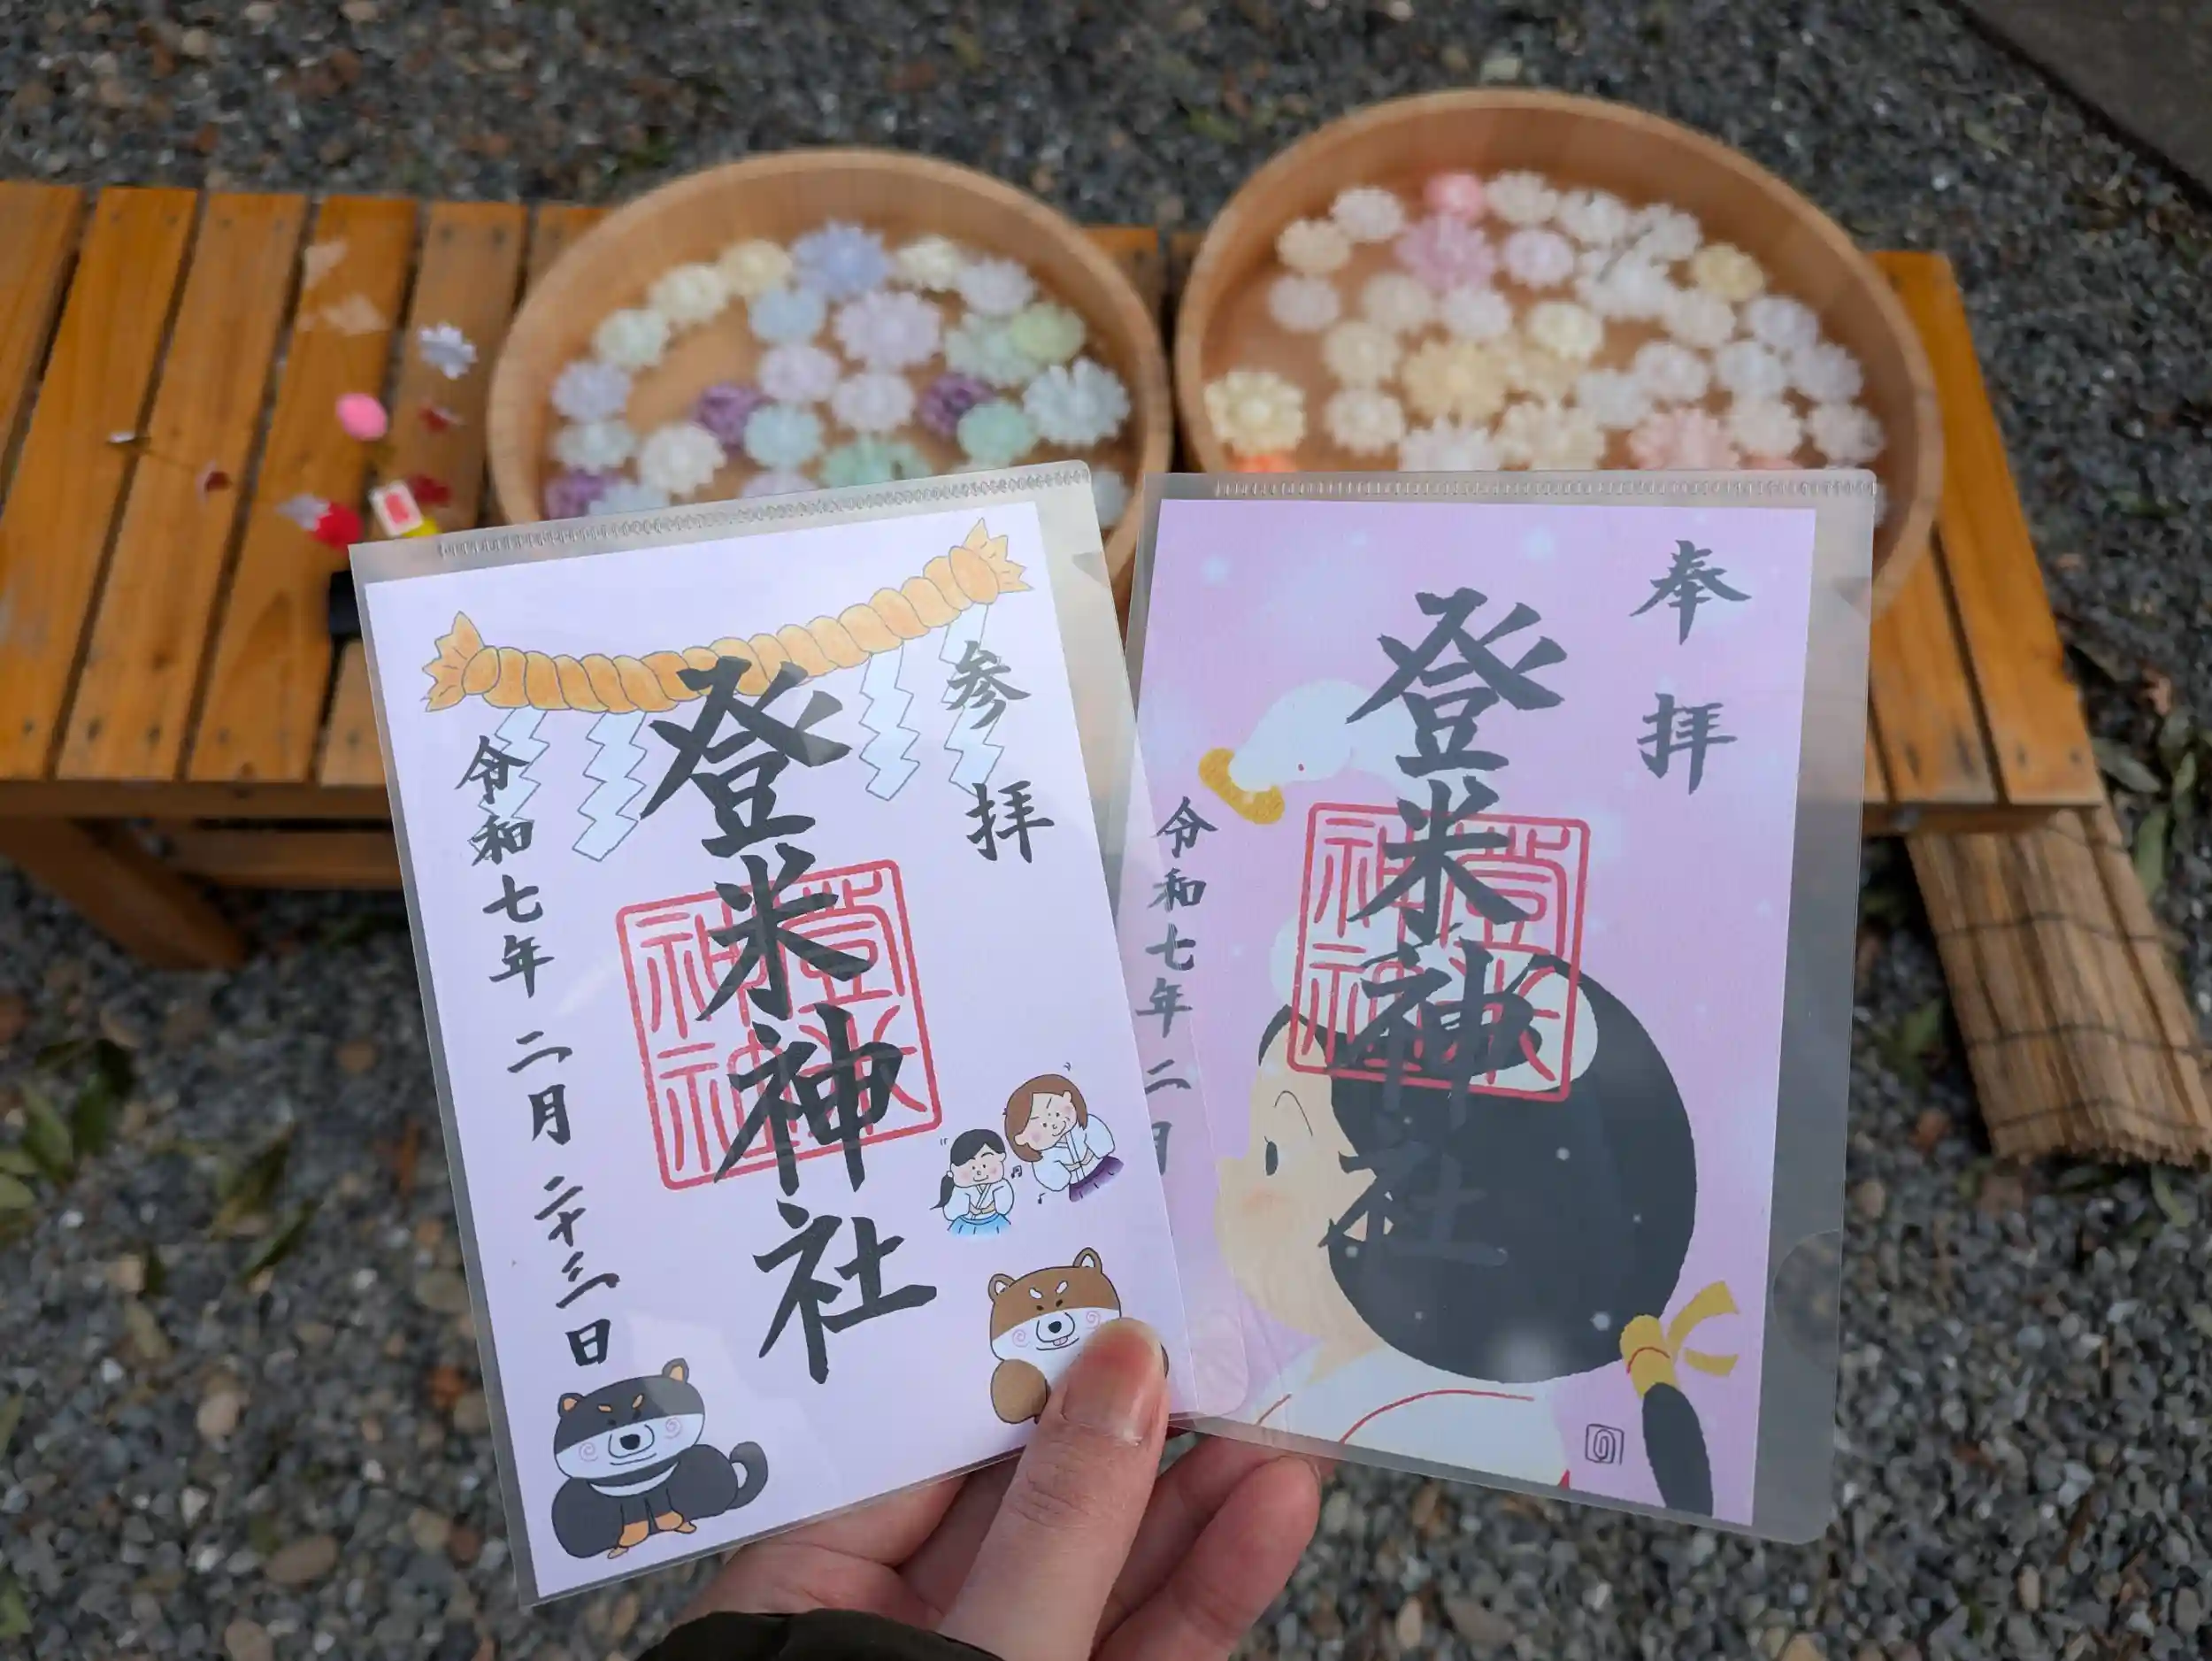 参拝
登米神社
登米神社
令和七年二月二十三日
奉拝
登米神社
登米神社
令和七年二月